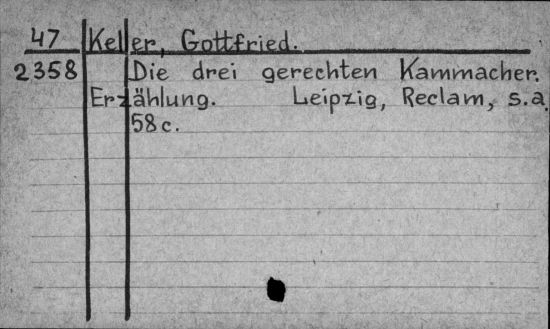 47 Keller, Gottfried.
2358 Die drei gerechten Kammacher.
Erzählung. Leipzig, Reclam, s.a.
58 c.